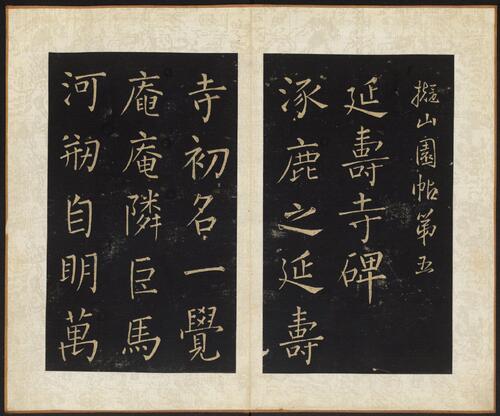 擬山園帖第五
延壽寺碑
涿鹿之延壽
寺初名一覺
庵庵隣巨馬
河刱自明萬